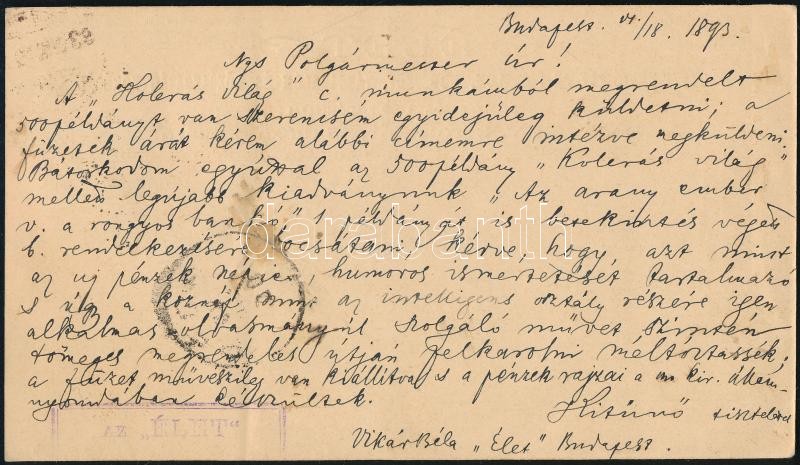 Budapest. VI/18. 1893.
Ngs Polgármester Úr!
A „Kolerás világ" c. munkámból megrendelt
500 példányt van szerencsém egyidejüleg küldetni; a
füzetek árát kérem alábbi címemre intézve megküldeni.
Bátorkodom egyúttal az 500 példány „Kolerás világ"
mellett legújabb kiadványunk „Az arany ember
v. a rongyos bankó" 1 példányát is betekintés végett
b. rendelkezésére bocsátani, kérve, hogy azt mint
az uj pénzek népies, humoros ismertetését tartalmazó
s úgy a köznép mint az intelligens osztály részére igen
alkalmas olvasmányúl szolgáló művet szintén
tömeges megrendelés útján felkarolni méltóztassék;
a füzet művészileg van kiállítva s a pénzek rajzai a m. kir. állam-
nyomdában készültek.
Kitünő tisztelettel
Vikár Béla „Élet" Budapest.
AZ „ÉLET"
darabanth